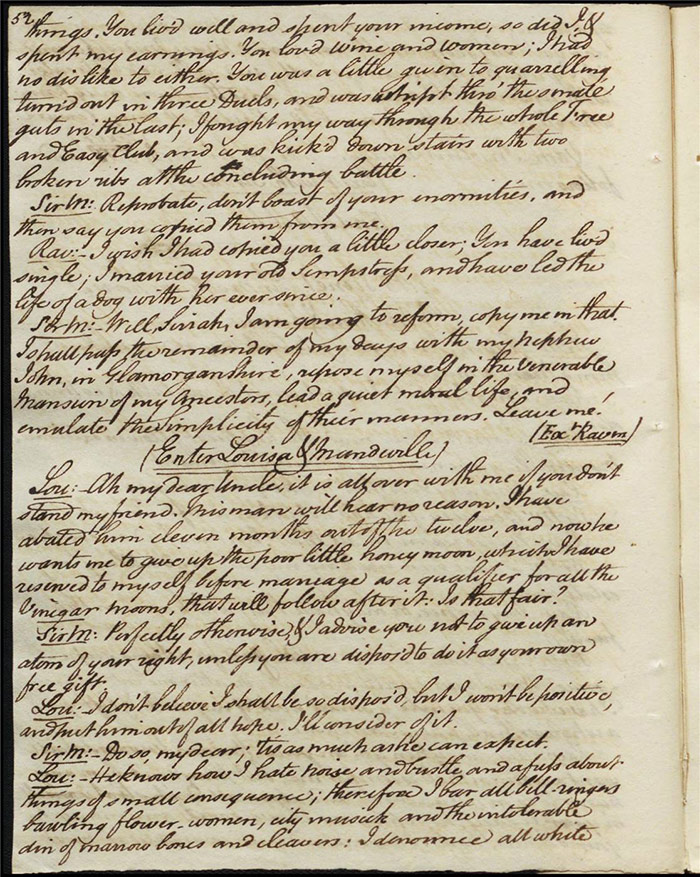 52
things. You liv'd well and spent your income, so did I, &
spent my earnings. You lov'd wine and women; I had
no dislike to either. You was a little given to quarrelling
turn'd out in three Duels, and was whipt thro' the small
guts in the last; I fought my way through the whole Free
and Easy Club, and was kick'd down stairs with two
broken ribs at the concluding battle.
Sir M:- Reprobate, don't boast of your enormities, and
then say you copied them from me.
Rav:- I wish I had copied you a little closer; You have liv'd
single; I married your old Sempstress, and have led the
life of a dog with her ever since.
Sir M:- Well, Sirrah, I am going to reform, copy me in that.
I shall pass the remainder of my days with my nephew
John, in Glamorganshire, repose myself in the venerable
Mansion of my Ancestors, lead a quiet moral life, and
emulate the Simplicity of their manners. Leave me!
(Ext Raven)
(Enter Louisa & Mandeville)
Lou:- Ah my dear Uncle, it is all over with me if you don't
stand my friend. This man will hear no reason. I have
abated him eleven months out of the twelve, and now he
wants me to give up the poor little honey moon, which I have
reserved to myself before marriage as a qualifier for all the
Vinegar moons, that will follow after it: Is that fair?
Sir M: Perfectly otherwise, & I advise you not to give up an
atom of your right, unless you are dispos'd to do it as your own
free gift.
Lou:- I don't believe I shall be so dispos'd, but I won't be positive,
and put him out of all hope. I'll consider of it.
Sir M:- Do so, my dear; 'tis as much as he can expect.
Lou:- He knows how I hate noise and bustle, and a fuss about
things of small consequence; therefore I bar all bell-ringers
bawling flower-women, city musick and the intolerable
din of marrow bones and cleavers: I denounce all white